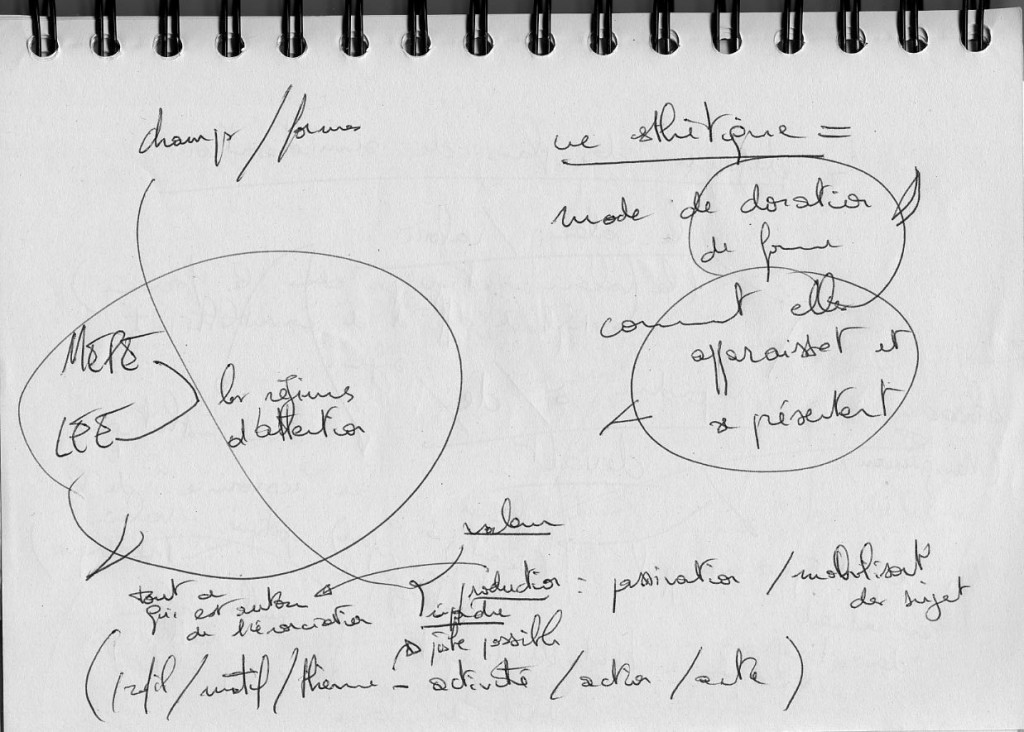 champs/formes
vie esthétique =
mode de donation
de forme
comment elles
apparaissent et
se présentent
MEPE
LEE
les régimes
d'attention
valeur
production = passivation / mobilisant
des sujets
tout ce
qui est autour
de l'énonciation
juste possible
(profil/motif/thème - activité/action/acte)